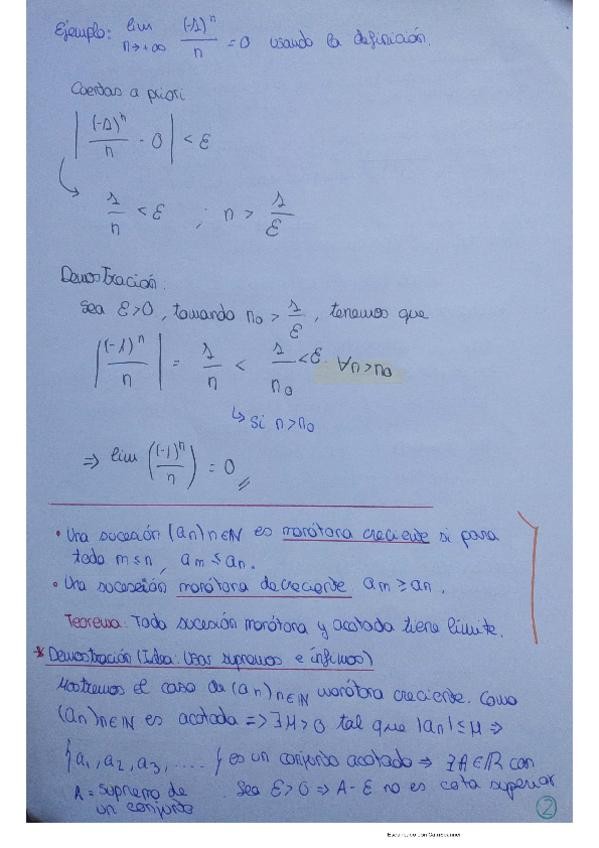 Ejemplo: lim n→+∞ (-1)^n / n = 0 usando la definición.
Cuentas a priori
| (-1)^n / n - 0 | < ε
1/n < ε ; n > 1/ε
Demostración:
Sea ε>0, tomando n₀ > 1/ε, tenemos que
| (-1)^n / n | = 1/n < 1/n₀ < ε ∀n>n₀
↳ si n>n₀
⇒ lim ( (-1)^n / n ) = 0
• Una sucesión (an)n∈ℕ es monótona creciente si para
todo m≤n, am ≤ an.
• Una sucesión monótona decreciente am ≥ an.
Teorema: Toda sucesión monótona y acotada tiene límite.
* Demostración (Idea: Usar supremos e ínfimos)
Mostremos el caso de (an)n∈ℕ monótona creciente. Como
(an)n∈ℕ es acotada => ∃M>0 tal que |an| ≤ M ⇒
{a₁, a₂, a₃, ....} es un conjunto acotado ⇒ ∃A∈ℝ con
A = supremo de . Sea ε>0 ⇒ A-ε no es cota superior
un conjunto
2